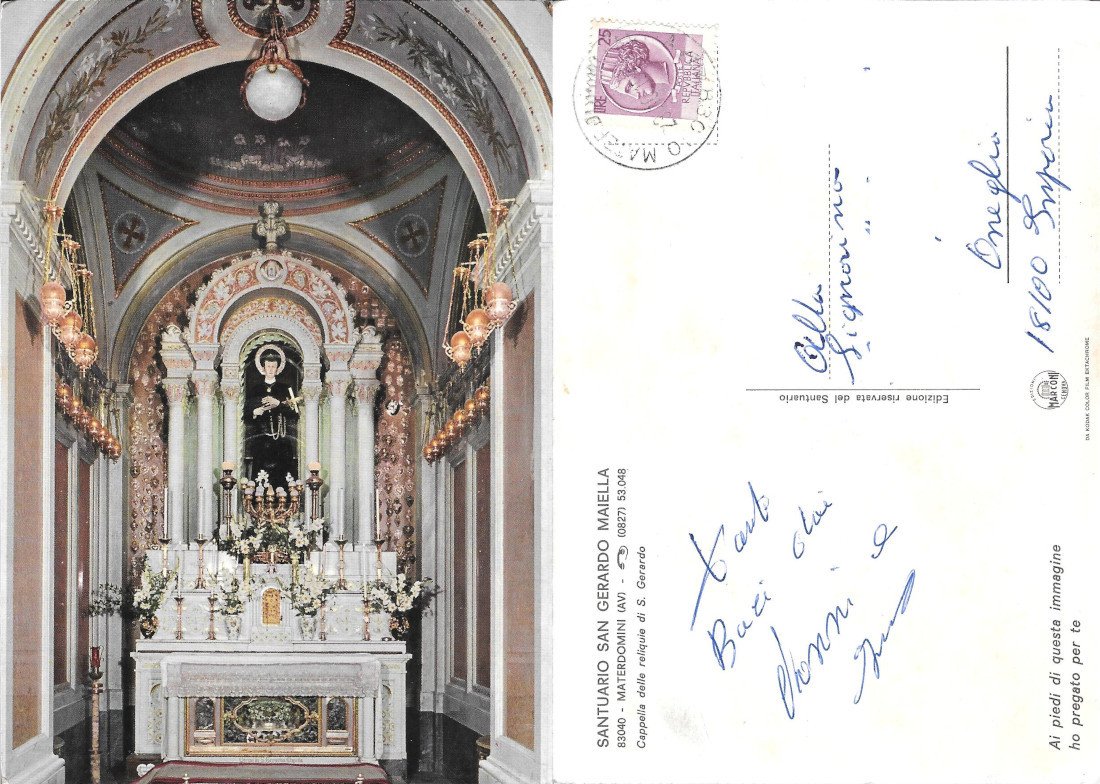 SANTUARIO SAN GERARDO MAIELLA
83040 - MATERDOMINI (AV) - ☎ (0827) 53.048
Cappella delle reliquie di S. Gerardo
Tanti
Baci dai
Nonni e
Ai piedi di questa immagine
ho pregato per te
Edizione riservata del Santuario
EDIZIONI
MARCONI
GENOVA
DA KODAK COLOR FILM EKTACHROME
LIRE 25
REPVBBLICA
ITALIANA
Alla
Signorina
Oneglia
18100 Imperia